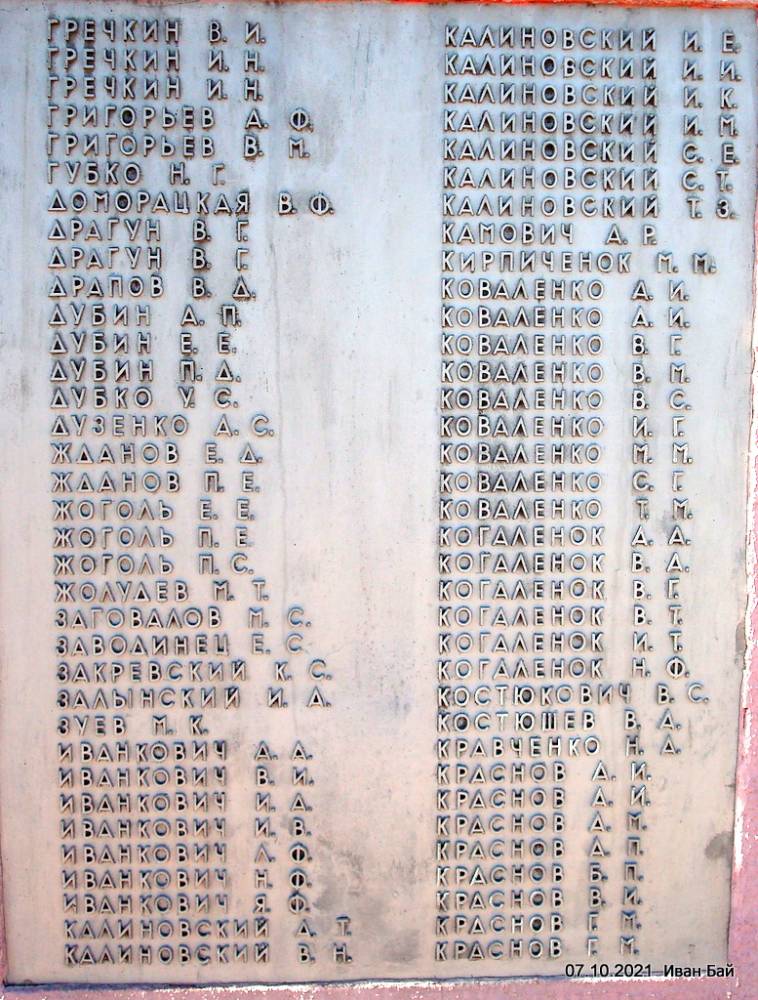 ГРЕЧКИН В. И.
ГРЕЧКИН И. Н.
ГРЕЧКИН И. Н.
ГРИГОРЬЕВ А. Ф.
ГРИГОРЬЕВ В. М.
ГУБКО Н. Г.
ДОМОРАЦКАЯ В. Ф.
ДРАГУН В. Г.
ДРАГУН В. Г.
ДРАПОВ В. Д.
ДУБИН А. П.
ДУБИН Е. Е.
ДУБИН П. Д.
ДУБКО У. С.
ДУЗЕНКО А. С.
ЖДАНОВ Е. Д.
ЖДАНОВ П. Е.
ЖОГОЛЬ Е. Е.
ЖОГОЛЬ П. Е
ЖОГОЛЬ П. С.
ЖОЛУДЕВ М. Т.
ЗАГОВАЛОВ М. С.
ЗАВОДИНЕЦ Е. С
ЗАКРЕВСКИЙ К. С.
ЗАЛЫНСКИЙ И. А.
ЗУЕВ М. К.
ИВАНКОВИЧ А. А.
ИВАНКОВИЧ В. И.
ИВАНКОВИЧ И. Д.
ИВАНКОВИЧ И. В.
ИВАНКОВИЧ Л. Ф.
ИВАНКОВИЧ Н. Ф.
ИВАНКОВИЧ Я. Ф.
КАЛИНОВСКИЙ А. Т.
КАЛИНОВСКИЙ В. Н.
КАЛИНОВСКИЙ И. Е.
КАЛИНОВСКИЙ И. И.
КАЛИНОВСКИЙ И. К.
КАЛИНОВСКИЙ И. М.
КАЛИНОВСКИЙ С. Е.
КАЛИНОВСКИЙ С. Т.
КАЛИНОВСКИЙ Т. З.
КАМОВИЧ А. Р.
КИРПИЧЕНОК М. М.
КОВАЛЕНКО Д. И.
КОВАЛЕНКО А. И.
КОВАЛЕНКО В. Г.
КОВАЛЕНКО В. М.
КОВАЛЕНКО В. С.
КОВАЛЕНКО И. Г.
КОВАЛЕНКО М. М.
КОВАЛЕНКО С. Г.
КОВАЛЕНКО Т. М.
КОГАЛЕНОК А. А.
КОГАЛЕНОК В. А.
КОГАЛЕНОК В. Г.
КОГАЛЕНОК В. Т.
КОГАЛЕНОК И. Т.
КОГАЛЕНОК Н. Ф.
КОСТЮКОВИЧ В. С.
КОСТЮШЕВ В. А.
КРАВЧЕНКО Н. Д.
КРАСНОВ А. И.
КРАСНОВ А. И.
КРАСНОВ А. М.
КРАСНОВ А. П.
КРАСНОВ Б. П.
КРАСНОВ В. И.
КРАСНОВ Г. М.
КРАСНОВ Г. М.
07.10.2021 Иван Бай